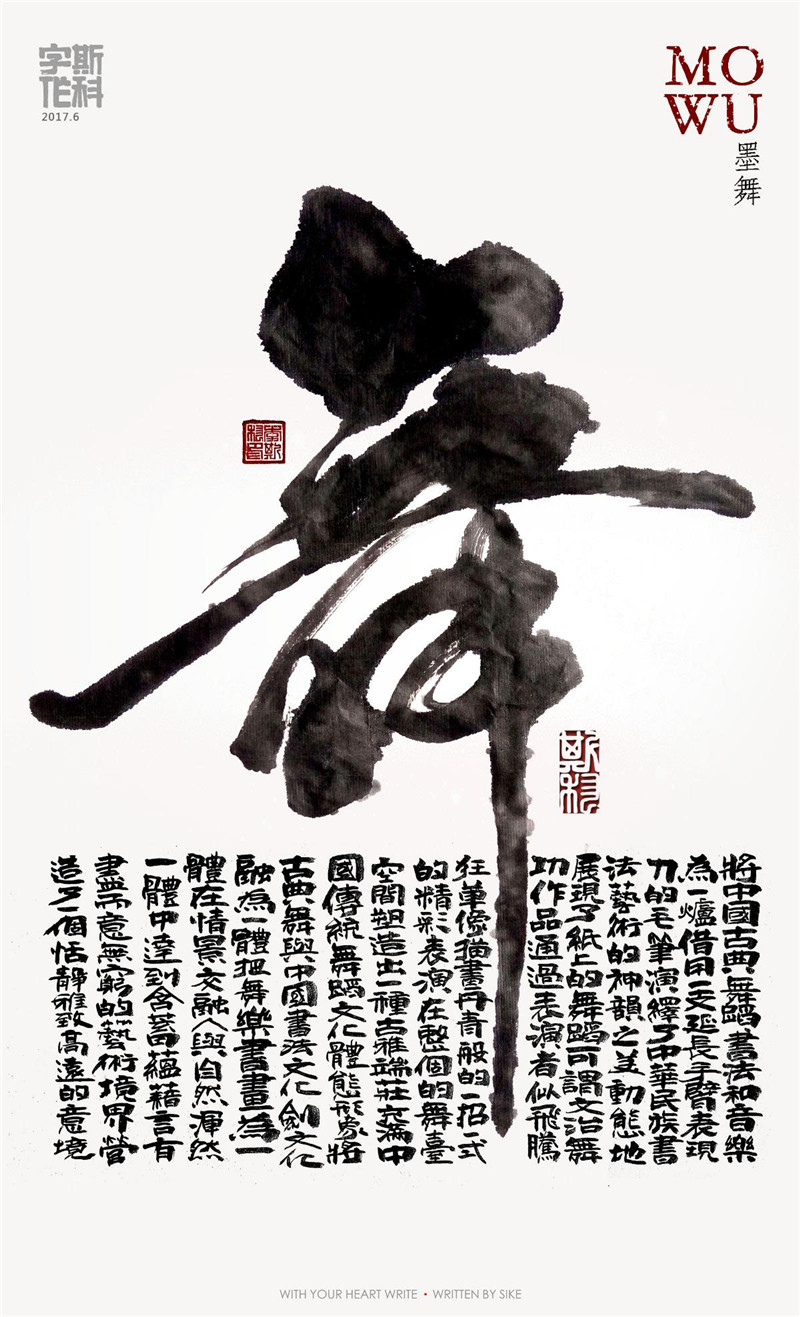 斯科
字作
2017.6
MO
WU
墨舞
舞
斯科
將中國古典舞蹈書法和音樂
為一爐借用一支延長手臂表現
力的毛筆演繹了中華民族書
法藝術的神韻之美動態地
展現了紙上的舞蹈可謂文治舞
功作品通過表演者似飛騰
狂草像描畫丹青般的一招一式
的精彩表演在整個的舞臺
空間塑造出一種古雅端莊充滿中
國傳統舞蹈文化體態形象將
古典舞與中國書法文化劍文化
融為一體把舞樂書畫為一
體在情景交融人與自然渾然
一體中達到含蓄蘊藉言有
盡而意無窮的藝術境界營
造了一個恬靜雅致高遠的意境
WITH YOUR HEART WRITE • WRITTEN BY SIKE